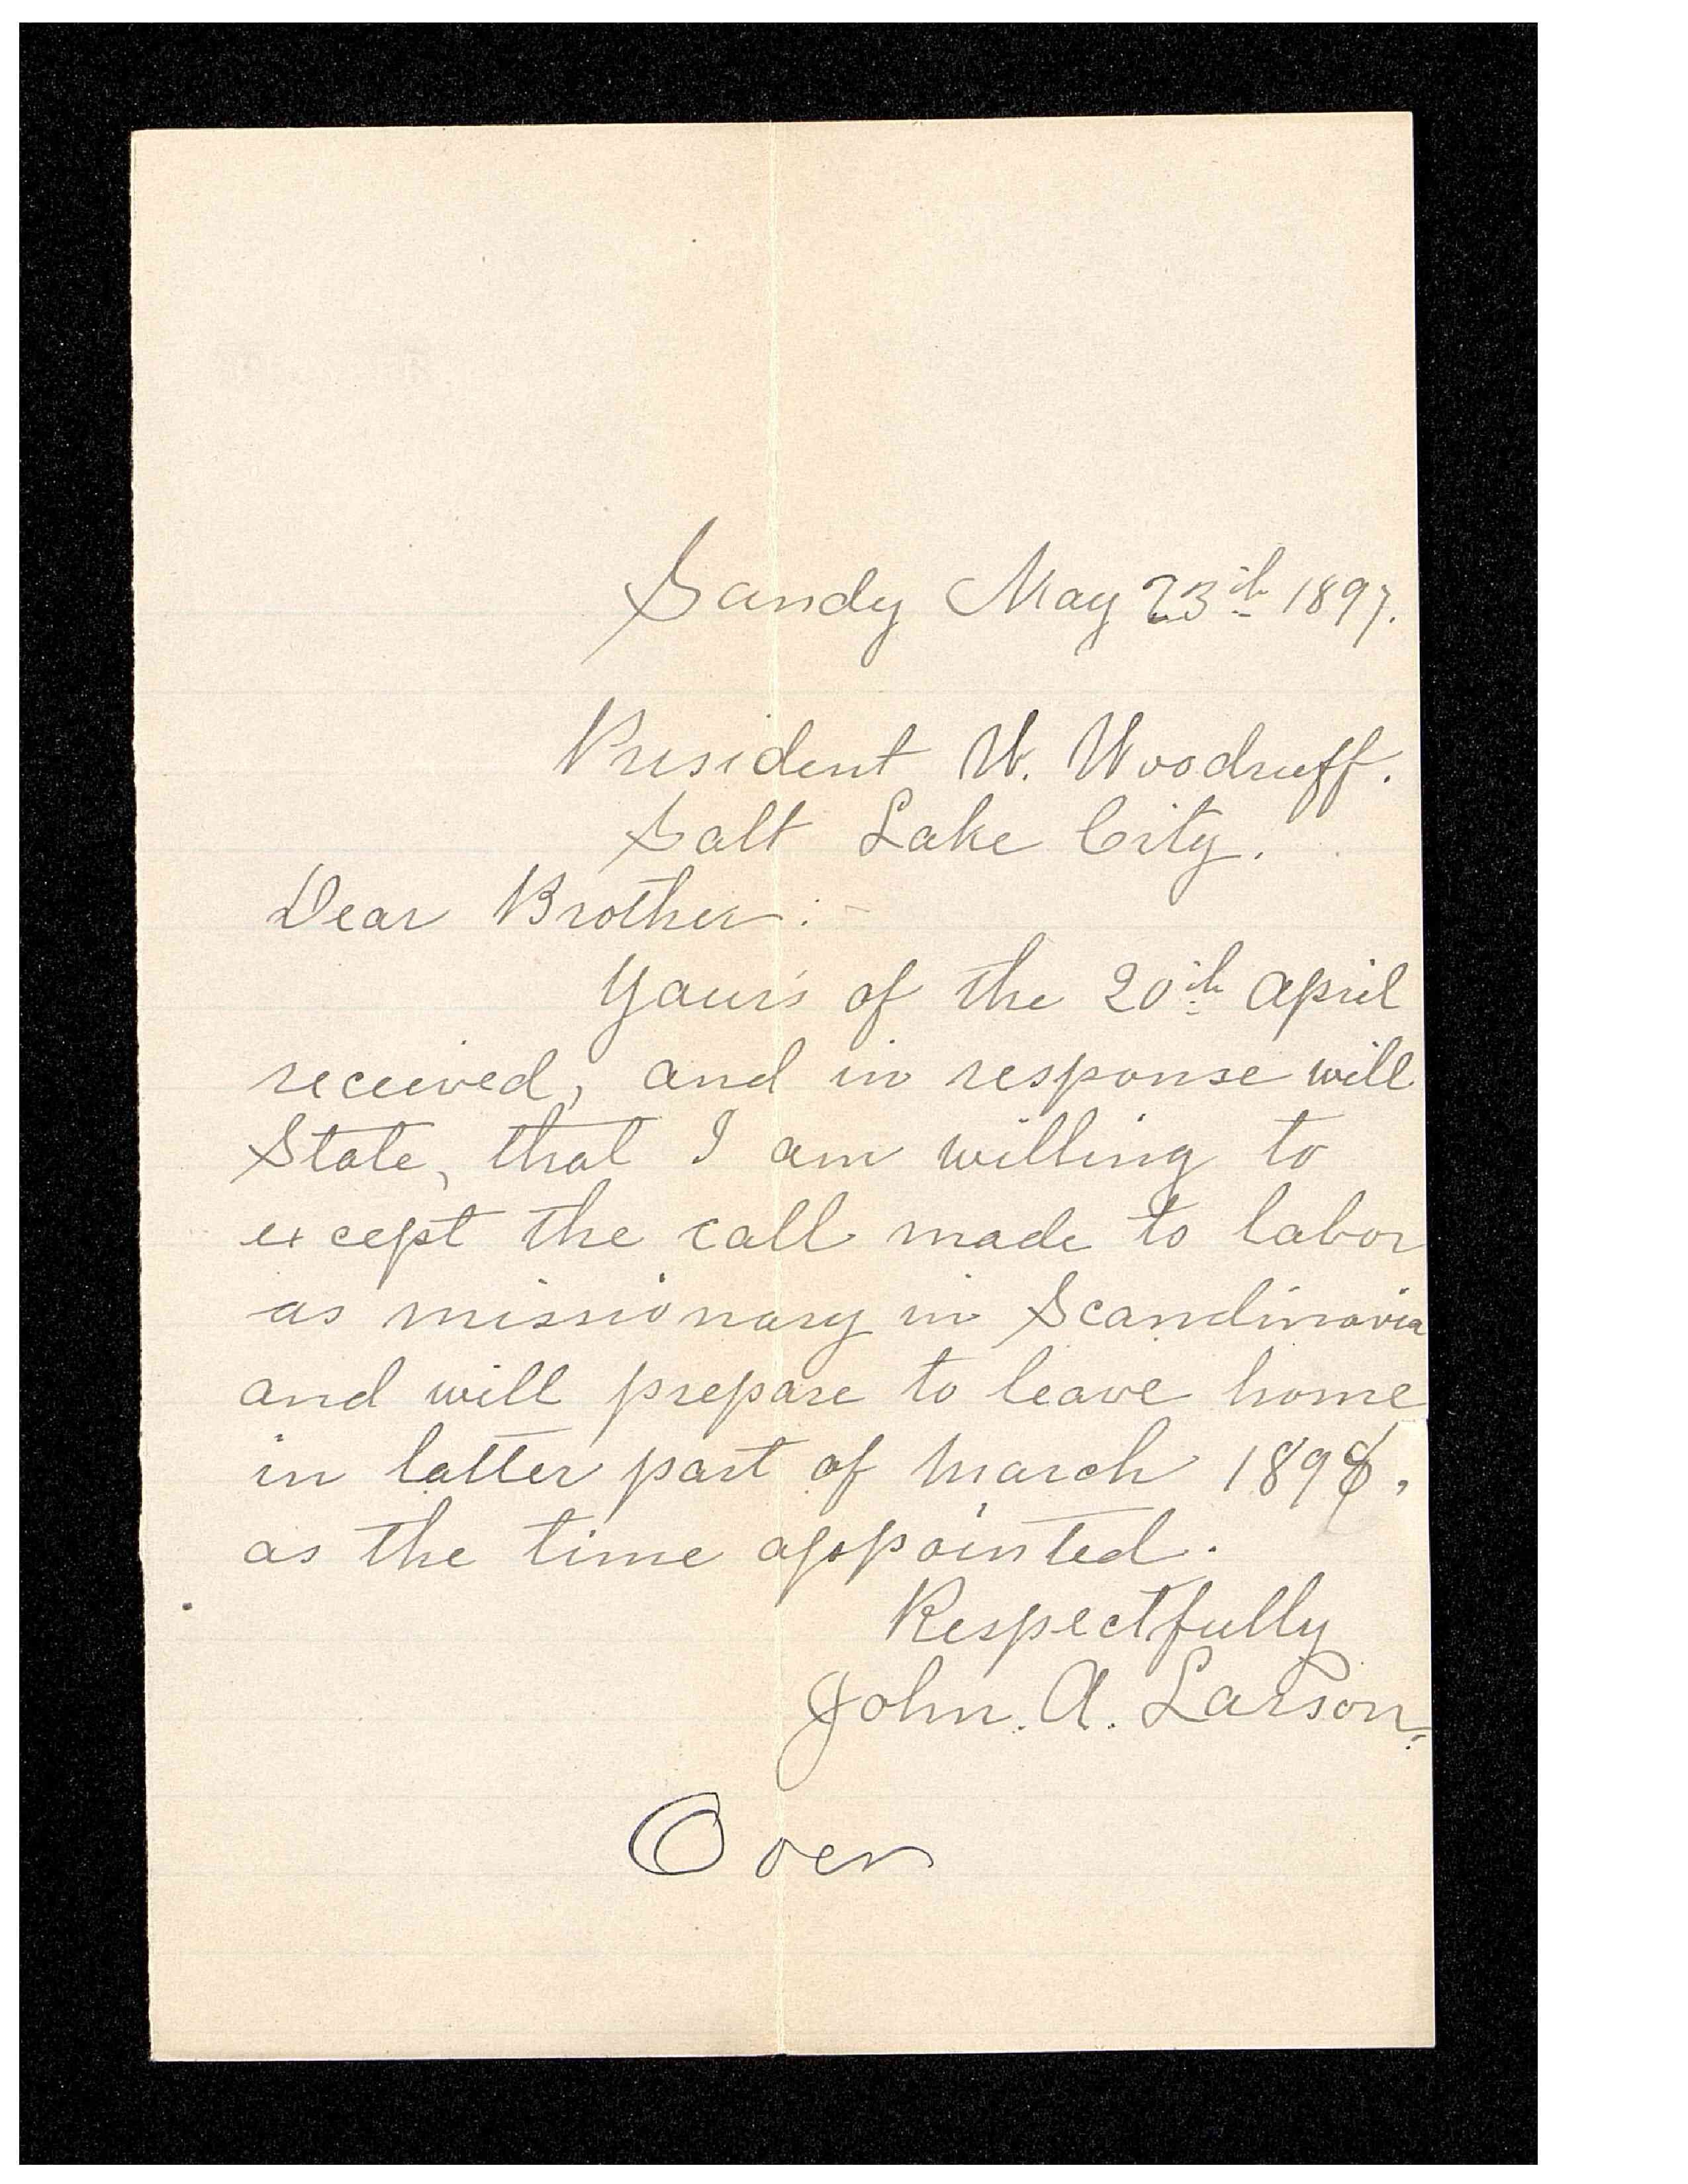 Sandy May 23th 1897.
President W. Woodruff.
Salt Lake City.
Dear Brother:-
Yours of the 20th April
received, and in response will
State, that I am willing to
except the call made to labor
as missionary in Scandinavia
and will prepare to leave home
in latter part of March 1898,
as the time appointed.
Respectfully
John. A. Larson.
Over